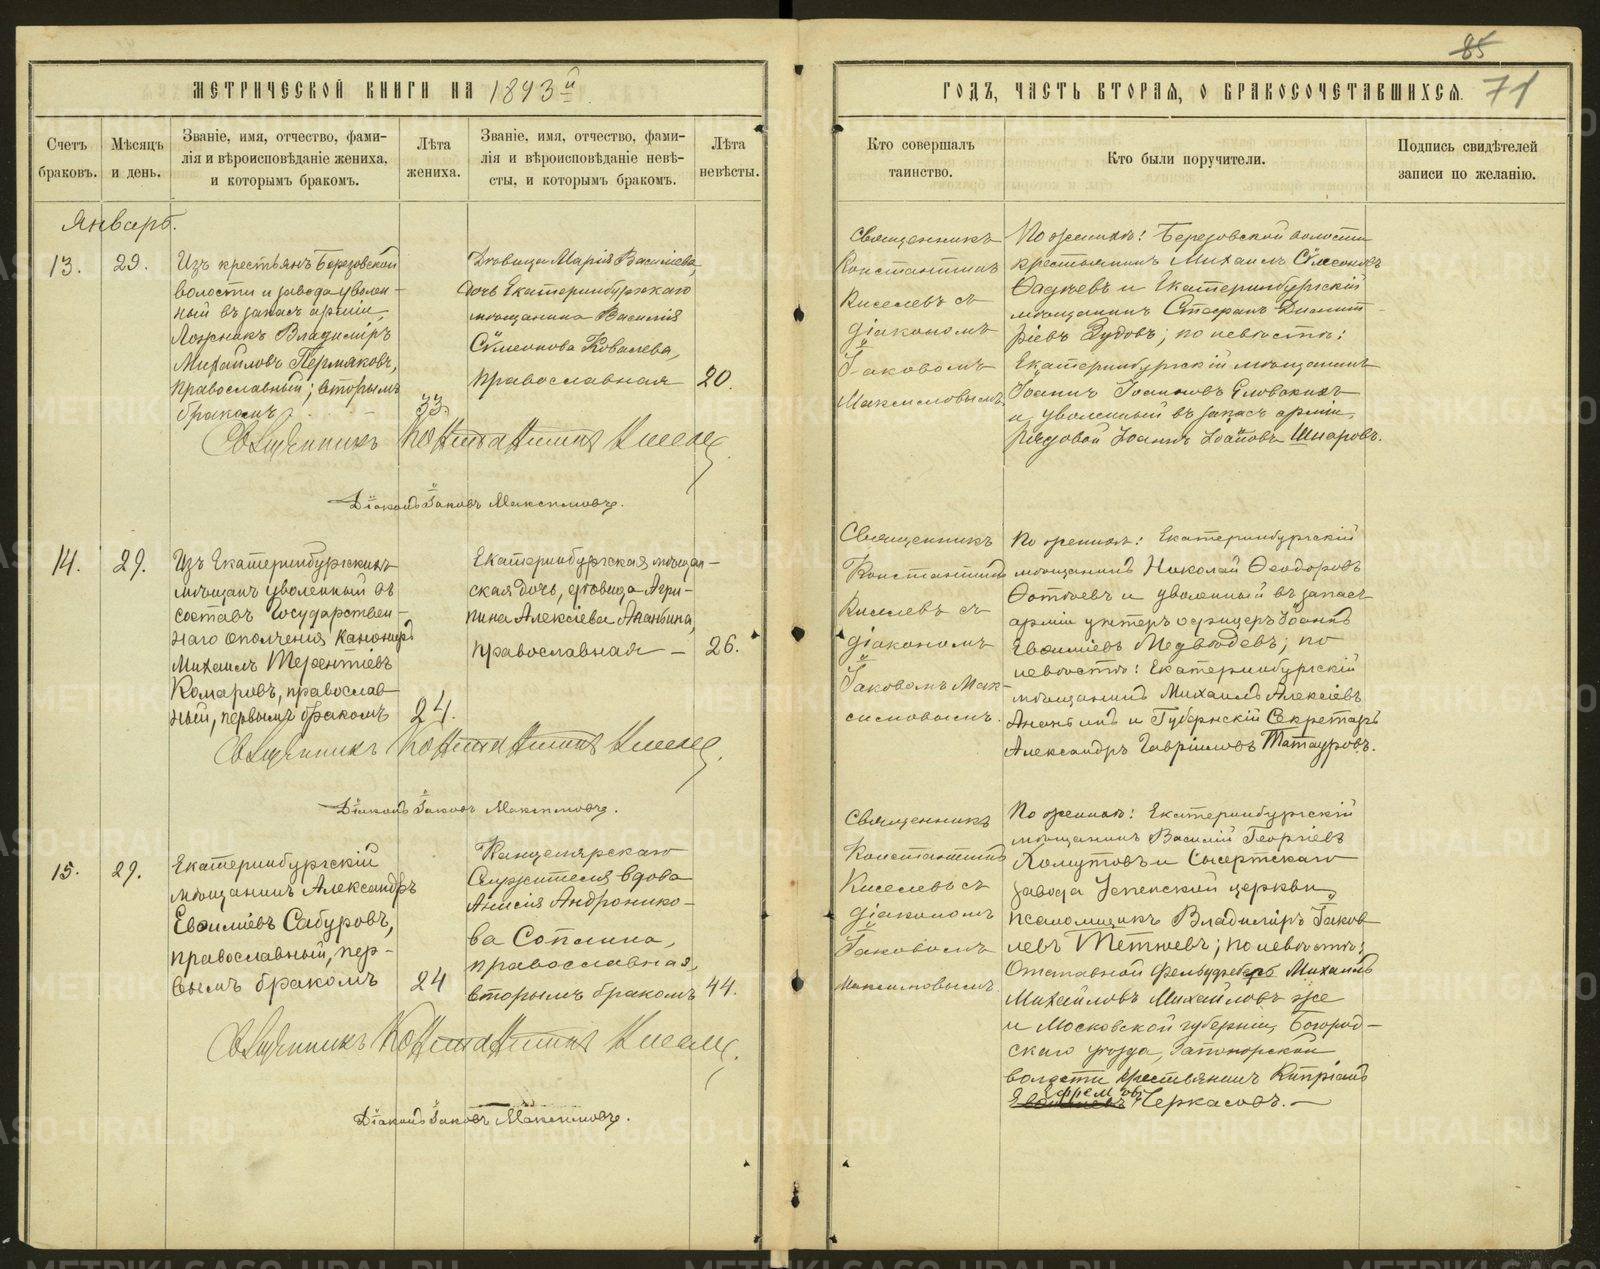 МЕТРИЧЕСКОЙ КНИГИ НА 1893й
Счетъ браковъ.
Мѣсяцъ и день.
Званіе, имя, отчество, фами-
лія и вѣроисповѣданіе жениха,
и которымъ бракомъ.
Лѣта жениха.
Званіе, имя, отчество, фами-
лія и вѣроисповѣданіе невѣ-
сты, и которымъ бракомъ.
Лѣта невѣсты.
Январь.
13.
29.
Изъ крестьянъ Березовской
волости и завода уволен-
ный въ запасъ арміи,
Ложникъ Владиміръ
Михайловъ Пермяковъ,
православный; вторымъ
бракомъ
33.
Дѣвица Марія Васильева,
дочь Екатеринбургскаго
мѣщанина Василія
Сѵмеонова Ковалева,
православная
20.
Священникъ Константинъ Киселевъ
Діаконъ Іаковъ Максимовъ.
14.
29.
Изъ Екатеринбургскихъ
мѣщанъ уволенный въ
составъ Государствен-
наго ополченія канониръ
Михаилъ Терентіевъ
Комаровъ, православ-
ный, первымъ бракомъ
24.
Екатеринбургская мѣщан-
ская дочь, дѣвица Агри-
пина Алексіева Ананьина,
православная —
26.
Священникъ Константинъ Киселевъ
Діаконъ Іаковъ Максимовъ.
15.
29.
Екатеринбургскій
мѣщанинъ Александръ
Евѳиміевъ Сабуровъ,
православный, пер-
вымъ бракомъ
24
Канцелярскаго
Служителя вдова
Анисія Андронико-
ва Сопина,
православная,
вторымъ бракомъ
44.
Священникъ Константинъ Киселевъ
Діаконъ Іаковъ Максимовъ.
85
71
ГОДЪ, ЧАСТЬ ВТОРАЯ, О БРАКОСОЧЕТАВШИХСЯ.
Кто совершалъ
таинство.
Кто были поручители.
Подпись свидѣтелей
записи по желанію.
Священникъ
Константинъ
Киселевъ съ
діакономъ
Іаковомъ
Максимовымъ.
По женихѣ: Березовской волости
крестьянинъ Михаилъ Сѵмеоновъ
Ѳадѣевъ и Екатеринбургскій
мѣщанинъ Стефанъ Димит-
ріевъ Зудовъ; по невѣстѣ:
Екатеринбургскій мѣщанинъ
Іоаннъ Іоанновъ Еловскихъ
и уволенный въ запасъ арміи,
рядовой Іоаннъ Іоанновъ Шнаровъ.
Священникъ
Константинъ
Киселевъ съ
діакономъ
Іаковомъ Мак-
симовымъ.
По женихѣ: Екатеринбургскій
мѣщанинъ Николай Ѳеодоровъ
Ѳотѣевъ и уволенный въ запасъ
арміи унтеръ офицеръ Іоаннъ
Евѳиміевъ Медвѣдевъ; по
невѣстѣ: Екатеринбургскій
мѣщанинъ Михаилъ Алексіевъ
Ананьинъ и Губернскій Секретарь
Александръ Гавріиловъ Татауровъ.
Священникъ
Константинъ
Киселевъ съ
діакономъ
Іаковомъ
Максимовымъ.
По женихѣ: Екатеринбургскій
мѣщанинъ Василій Георгіевъ
Хомутовъ и Сысертскаго
завода Успенской церкви,
псаломщикъ Владиміръ Іаков-
левъ Тетюевъ; по невѣстѣ:
Отставной Фельдфебель Михаилъ
Михайловъ Михайловъ же
и Московской губерніи, Богород-
скаго уѣзда, Запонорской
волости крестьянинъ Кипріанъ
Ефремовъ
Черкасовъ. —
METRIKI.GASO-URAL.RU